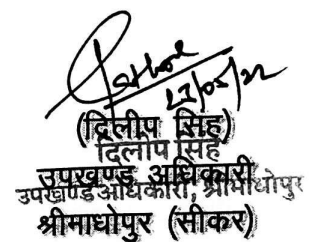 27/05/22
(दिलीप सिंह)
दिलीप सिंह
उपखण्ड अधिकारी
उपखण्ड अधिकारी, श्रीमाधोपुर
श्रीमाधोपुर (सीकर)